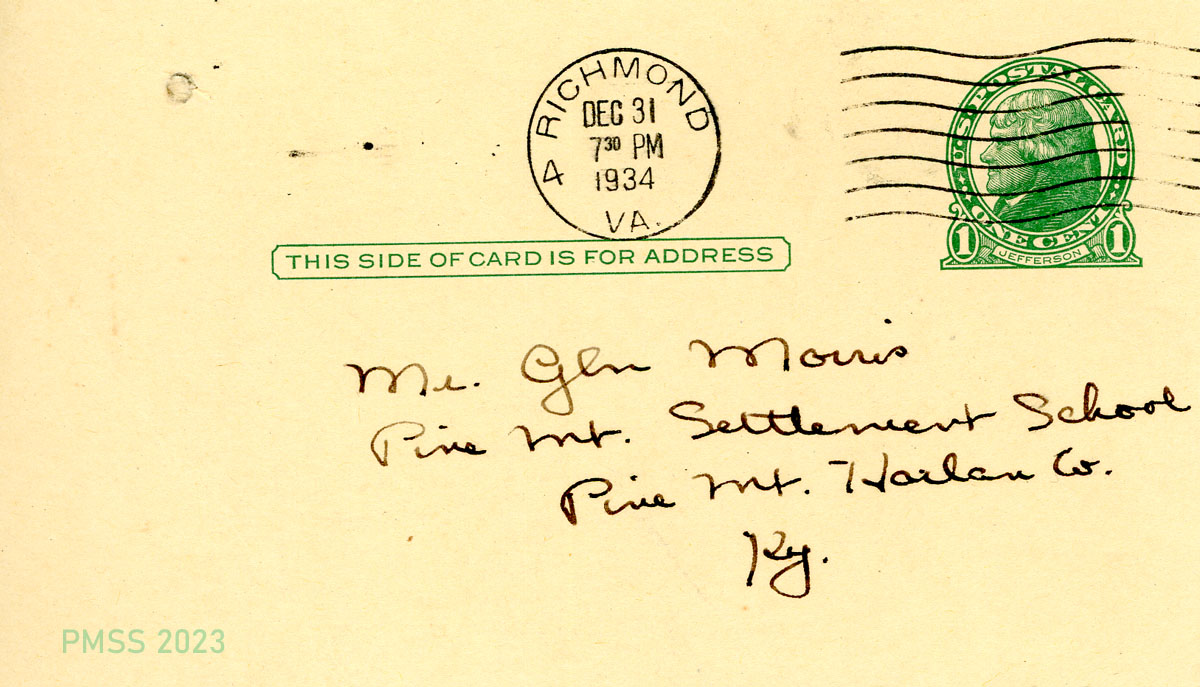 4 RICHMOND
DEC 31
7 30 PM
1934
VA.
U.S. POSTAL CARD
ONE CENT
1 JEFFERSON 1
THIS SIDE OF CARD IS FOR ADDRESS
Mr. Glen Morris
Pine Mt. Settlement School
Pine Mt. Harlan Co.
Ky.
PMSS 2023